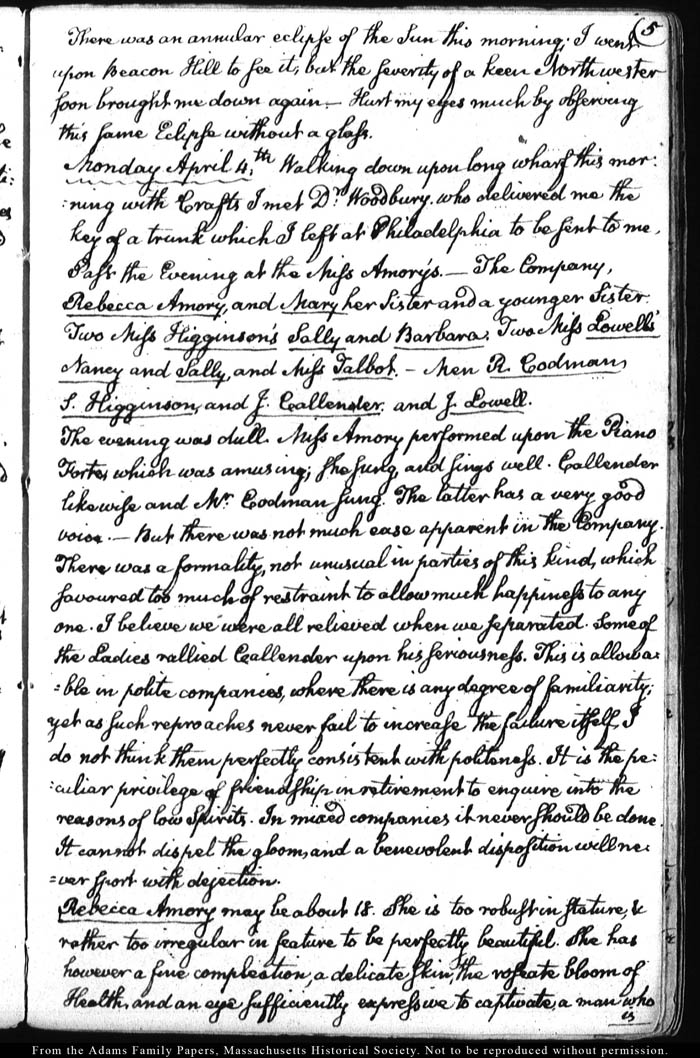 5
There was an annular eclipse of the Sun this morning; I went
upon Beacon Hill to see it, but the severity of a keen Northwester
soon brought me down again — Hurt my eyes much by observing
this same Eclipse without a glass.
Monday April 4.th Walking down upon long wharf this mor:
:ning with Crafts I met Dr. Woodbury, who delivered me the
key of a trunk which I left at Philadelphia to be sent to me.
Pass't the Evening at the Miss Amory's. — The Company,
Rebecca Amory, and Mary her Sister and a younger Sister.
Two Miss Higginson's Sally and Barbara. Two Miss Lowell's
Nancy and Sally, and Miss Talbot. — Men R. Codman,
S. Higginson, and J. Callender. and J. Lowell.
The evening was dull. Miss Amory performed upon the Piano
Forte, which was amusing; She sung, and sings well. Callender
likewise and Mr. Codman sung. The latter has a very good
voice. — But there was not much ease apparent in the Company.
There was a formality, not unusual in parties of this kind, which
savoured too much of restraint to allow much happiness to any
one. I believe we were all relieved when we separated. Some of
the Ladies rallied Callender upon his seriousness. This is allowa:
:ble in polite companies, where there is any degree of familiarity;
yet as such reproaches never fail to increase the failure itself, I
do not think them perfectly consistent with politeness. It is the pe:
:culiar privilege of friendship in retirement to enquire into the
reasons of low Spirits. In mixed companies it never should be done.
It cannot dispel the gloom, and a benevolent disposition will ne:
:ver sport with dejection.
Rebecca Amory may be about 18. She is too robust in stature, &
rather too irregular in feature to be perfectly beautiful. She has
however a fine complection, a delicate skin, the roseate bloom of
Health, and an eye sufficiently expressive to captivate, a man who
is
From the Adams Family Papers, Massachusetts Historical Society. Not to be reproduced without permission.